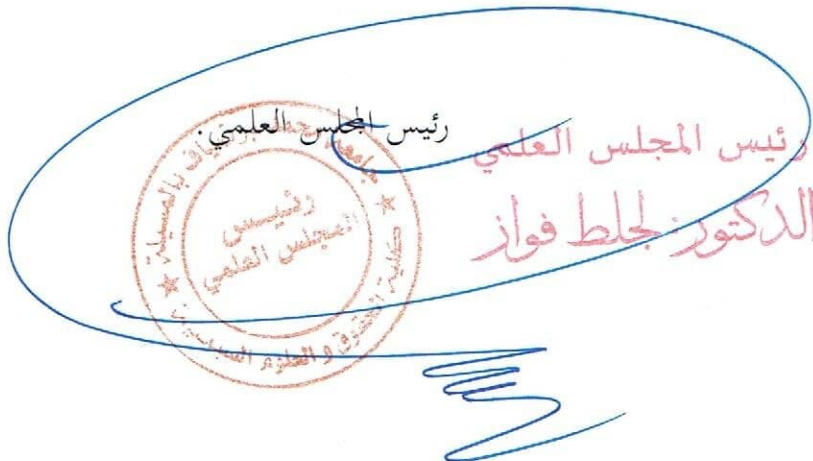 رئيس المجلس العلمي.
رئيس المجلس العلمي
الدكتور: لجلط فواز
جامعة محمد بوضياف بالمسيلة
رئيـــس
المجلس العلمي
كلية الحقوق و العلوم السياسية